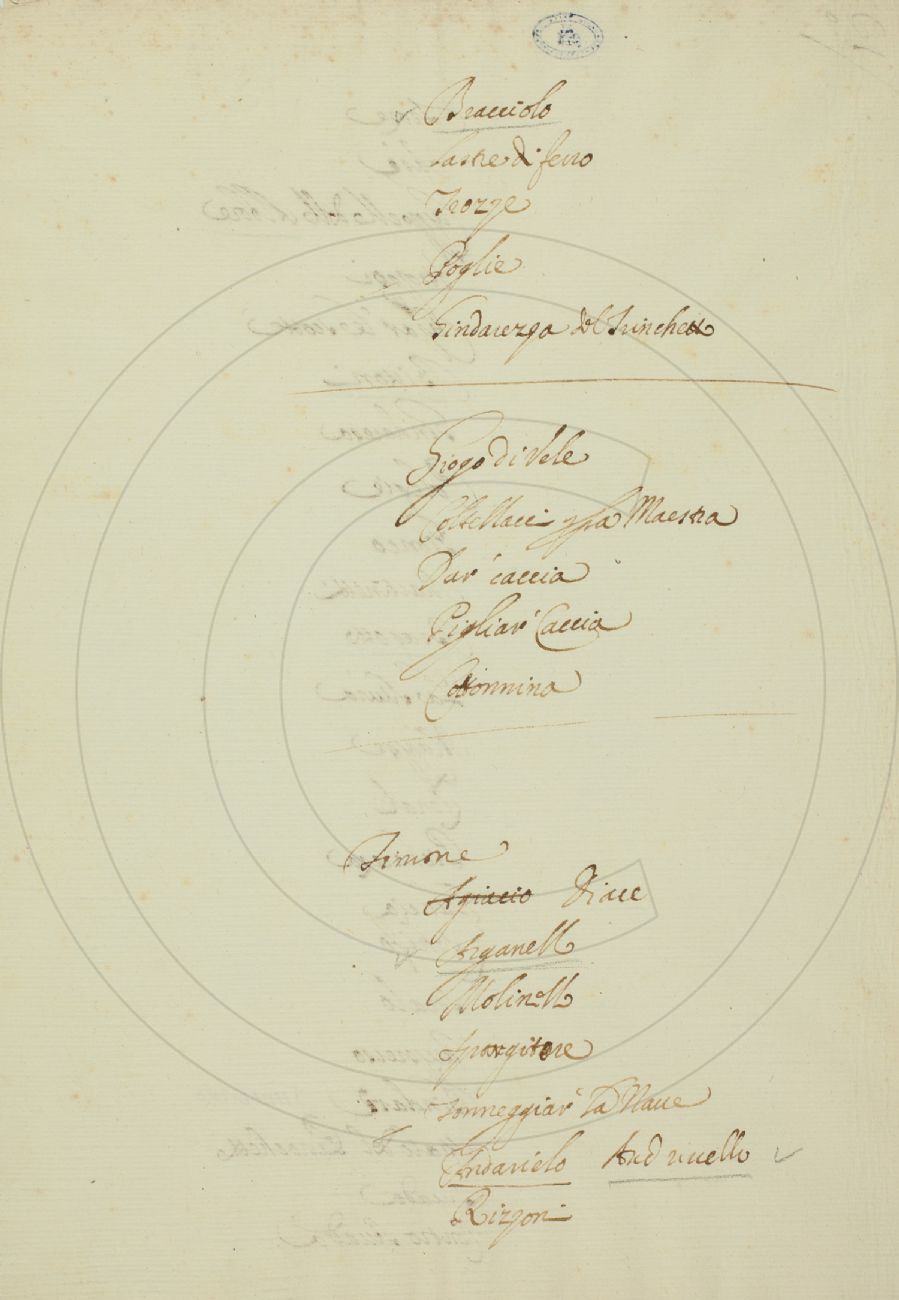 Bracciolo
Lastre di ferro
Trozze
Poglie
Gindarezza del Trinchetto
Giogo di Vele
Coltellacci la Maestra
Dar' caccia
Pigliar' Caccia
Cottonnina
Timone
Agiaccio Diace
Arganello
Molinello
Tonneggiar' la Naue
Andarielo Andriuello
Rizzoni